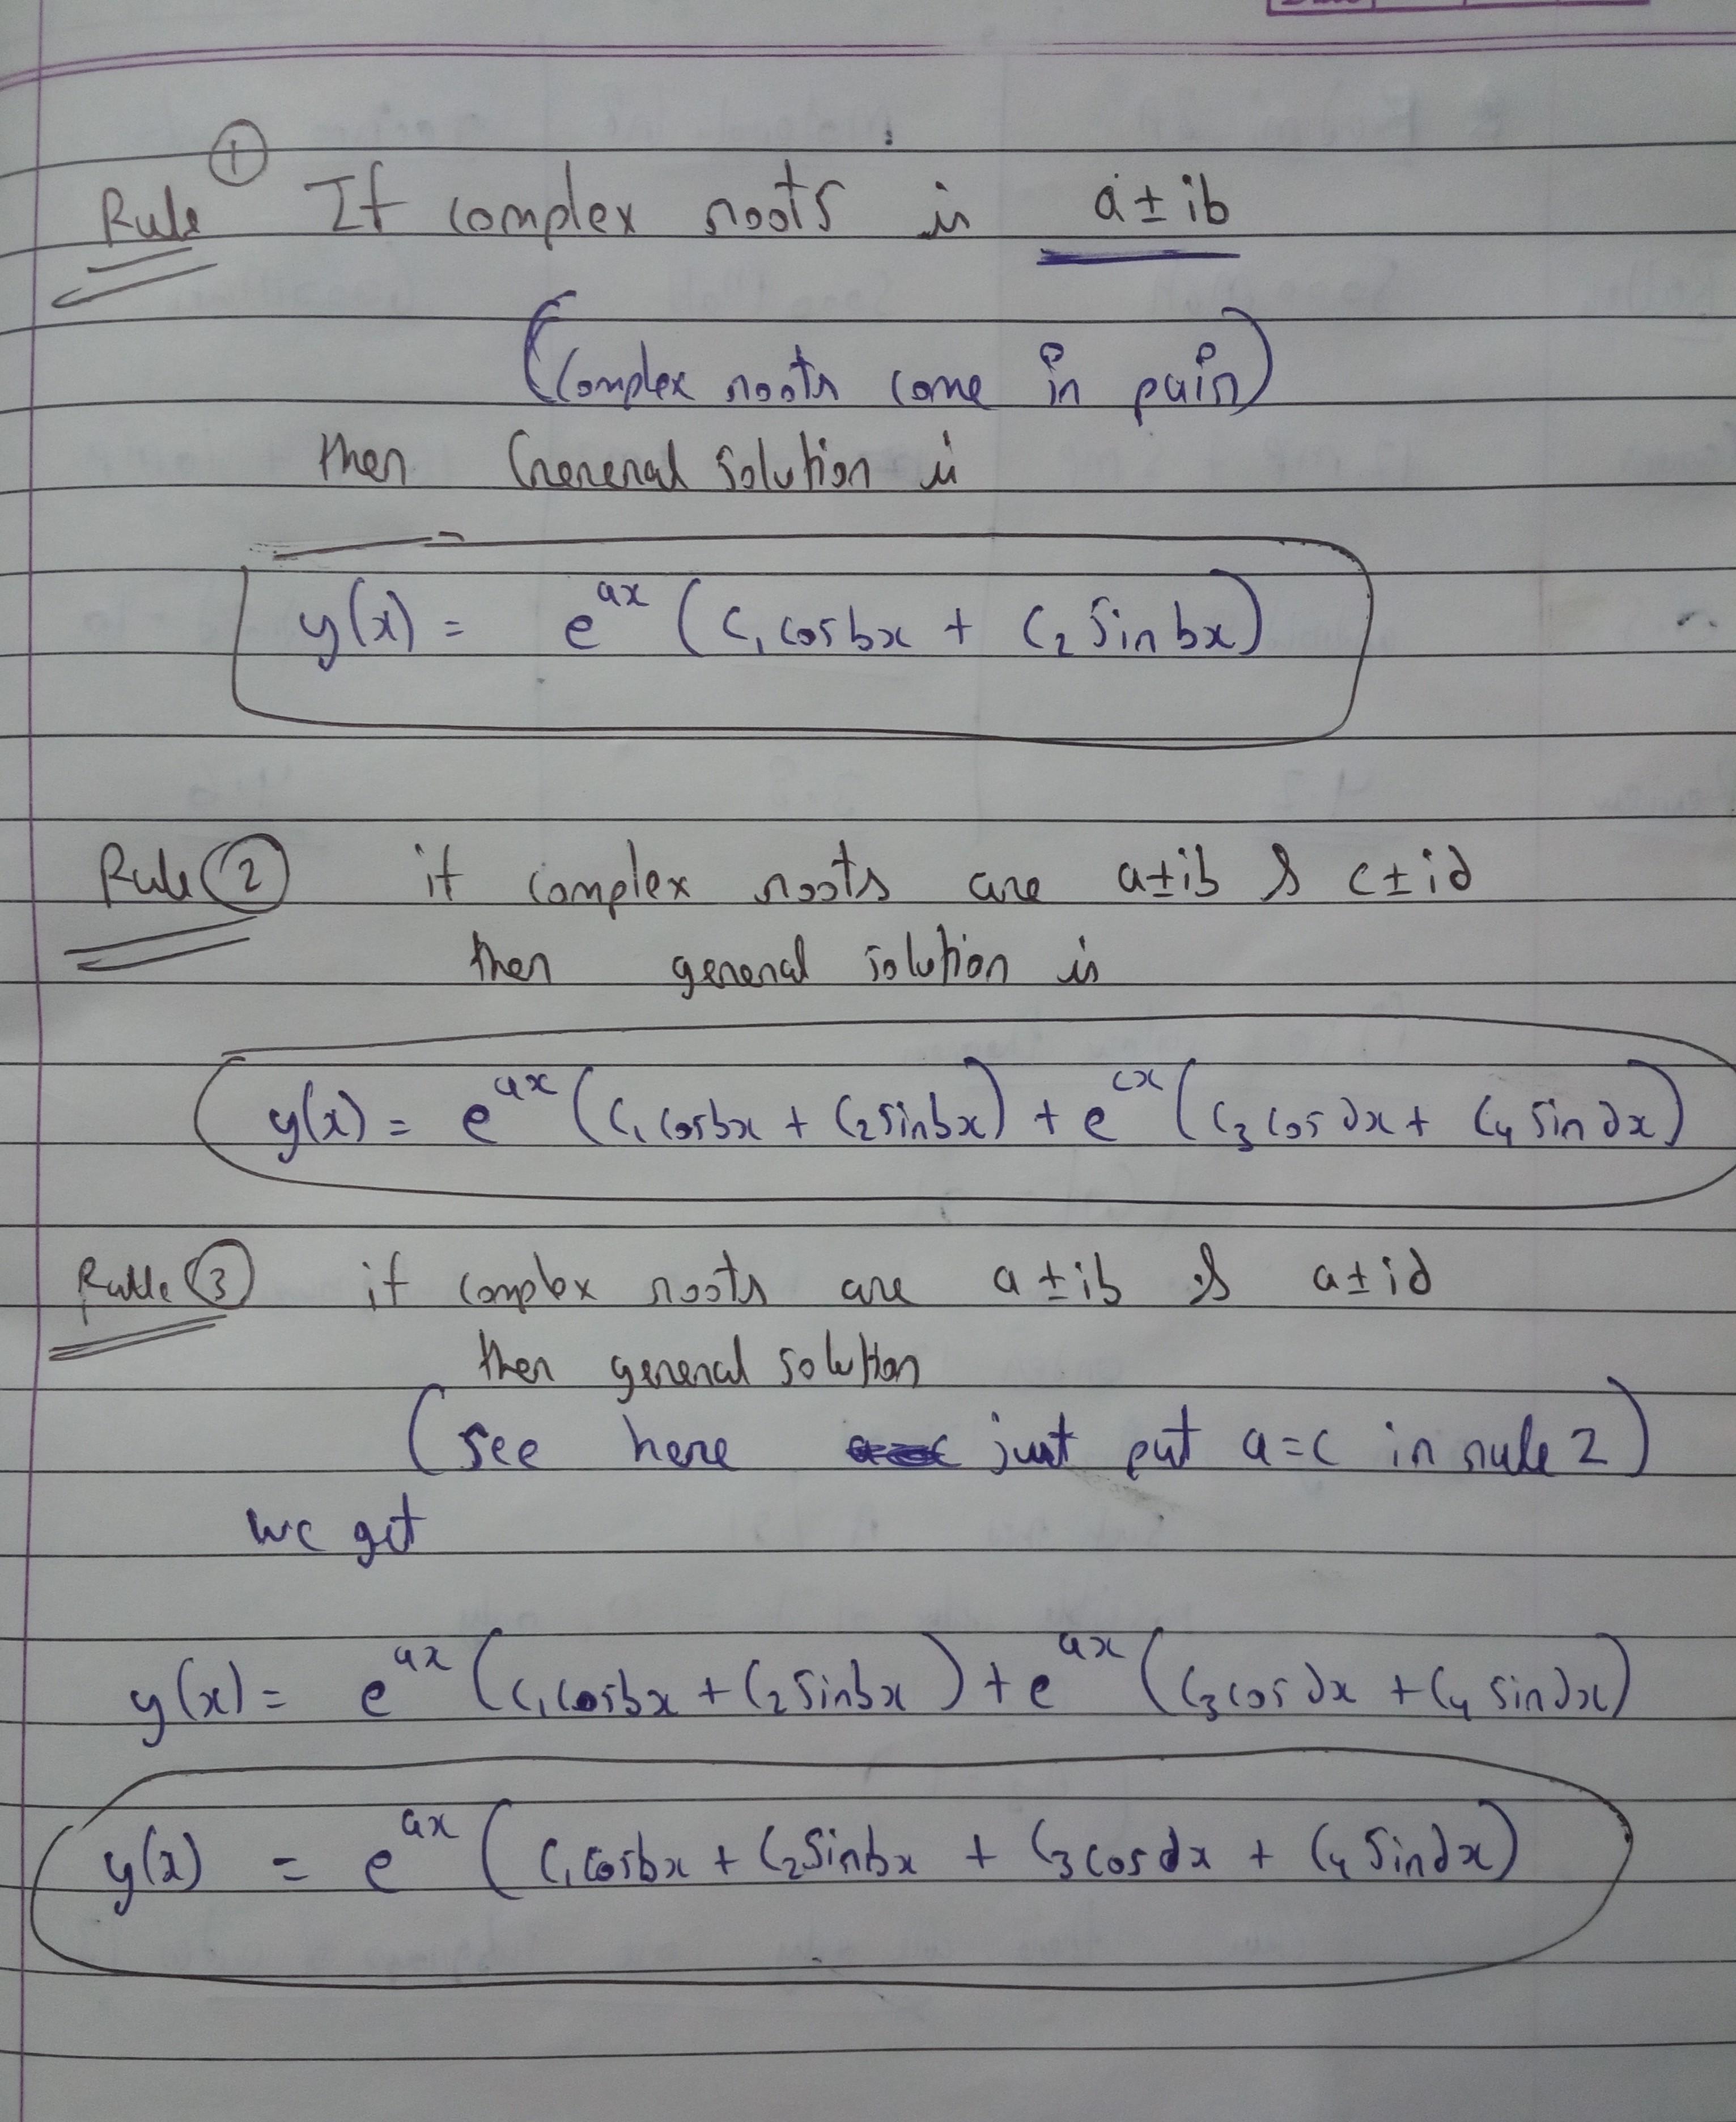 Rule ① If complex roots is a ± ib
(Complex roots come in pair)
then General solution is
y(x) = e^{ax} (C₁ cosbx + C₂ Sinbx)
Rule ② if complex roots are a±ib & c±id
then general solution is
y(x) = e^{ax} (C₁ cosbx + C₂ sinbx) + e^{cx} (C₃ cosdx + C₄ sindx)
Rule ③ if complex roots are a ± ib & a±id
then general solution
(see here just put a=c in rule 2)
we get
y(x) = e^{ax} (C₁cosbx + C₂ sinbx) + e^{ax} (C₃ cosdx + C₄ sindx)
y(x) = e^{ax} (C₁cosbx + C₂Sinbx + C₃ cosdx + C₄ Sindx)